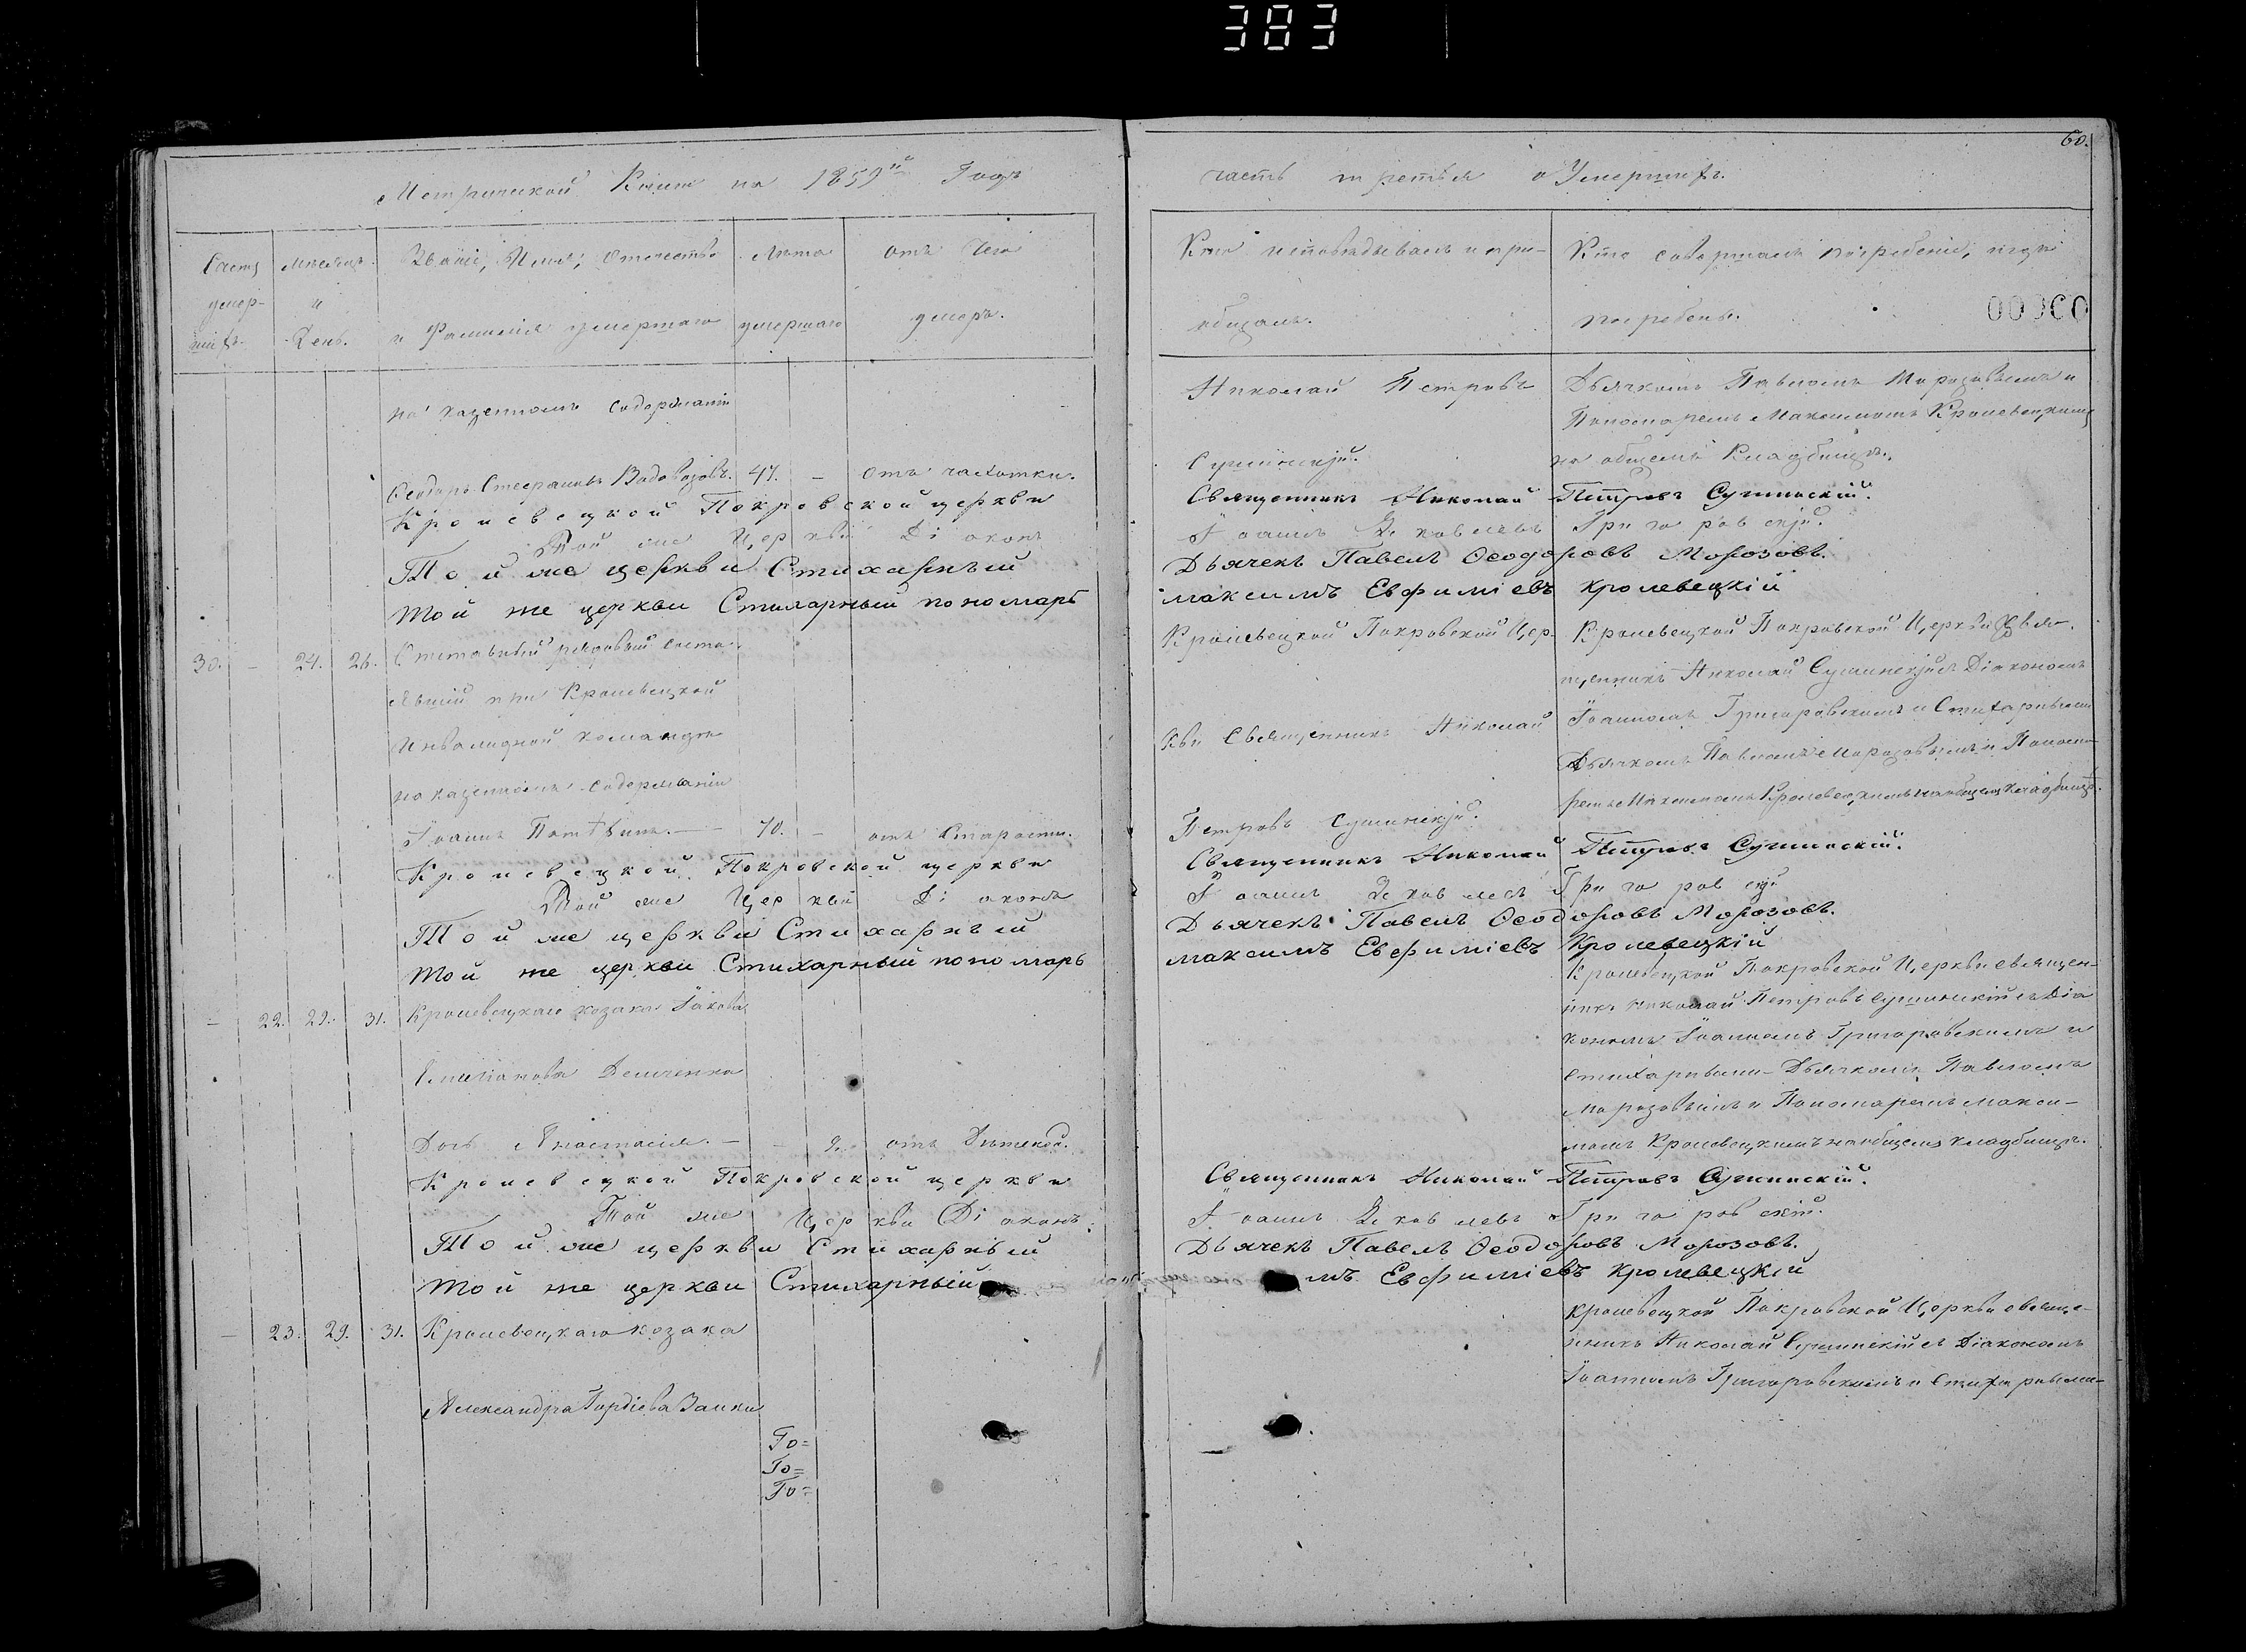 383
60.
Метрической Книги на 1859й Годъ
часть третья о Умершихъ.
Счетъ умер-шихъ.
Мѣсяцъ и День.
Званіе, Имя, Отечество и Фамилія умершаго
Лѣта умершаго
отъ Чего умеръ.
Кто исповѣдывалъ и прі-общалъ.
Кто совершалъ погребеніе, и гдѣ погребены.
на казенномъ содержаніи
Ѳеодоръ Стефановъ Водовозовъ. 47. – Отъ чахотки.
Николай Петровъ
Сушинскій.
Дьячкомъ Павломъ Морозовымъ и
Пономаремъ Максимомъ Кролевецкимъ
на общемъ Кладбищѣ.
Кролевецкой Покровской церкви Священникъ Николай Петровъ Сушинскій.
Той же Церкви Діаконъ Іоаннъ Яковлевъ Григоровскій.
Той же церкви Стихарный Дьячекъ Павелъ Ѳеодоровъ Морозовъ.
Той же церкви Стихарный пономарь максимъ Евфиміевъ Кролевецкій
30. – 24. 26. Отставный рядовый состо-
явшій при Кролевецкой
Инвалидной командѣ
на казенномъ содержаніи
Іоаннъ – 70. – отъ Старости.
Кролевецкой Покровской Цер-
кви Священникъ Николай
Петровъ Сушинскій.
Кролевецкой Покровской Церкви Свя-
щенникъ Николай Сушинскій съ Діакономъ
Іоанномъ Григоровскимъ и Стихарными
Дьячкомъ Павломъ Морозовымъ и Понома-
ремъ Максимомъ Кролевецкимъ на общемъ кладбищѣ.
Кролевецкой Покровской церкви Священникъ Николай Петровъ Сушинскій.
Той же Церкви Діаконъ Іоаннъ Яковлевъ Григоровскій
Той же церкви Стихарный Дьячекъ Павелъ Ѳеодоровъ Морозовъ.
Той же церкви Стихарный пономарь максимъ Евфиміевъ Кролевецкій
– 22. 29. 31. Кролевецкаго козака Іакова
Демченка
Дочь Анастасія. –
Кролевецкой Покровской Церкви священ-
никъ Николай Петровъ Сушинскій съ Діа
кономъ Іоанномъ Григоровскимъ и
Стихарными – Дьячкомъ Павломъ
Морозовымъ и Пономаремъ Макси-
момъ Кролевецкимъ на общемъ кладбищѣ.
Кролевецкой Покровской церкви Священникъ Николай Петровъ Сушинскій.
Той же Церкви Діаконъ Іоаннъ Яковлевъ Григоровскій.
Той же церкви Стихарный Дьячекъ Павелъ Ѳеодоровъ Морозовъ.
Той же церкви Стихарный мъ Евфиміевъ Кролевецкій
– 23. 29. 31. Кролевецкаго козака
Александра Гордіева Заики
Кролевецкой Покровской Церкви священ-
никъ Николай Сушинскій съ Діакономъ
Іоанномъ Григоровскимъ и Стихарными –
Го=
Го=
Го=